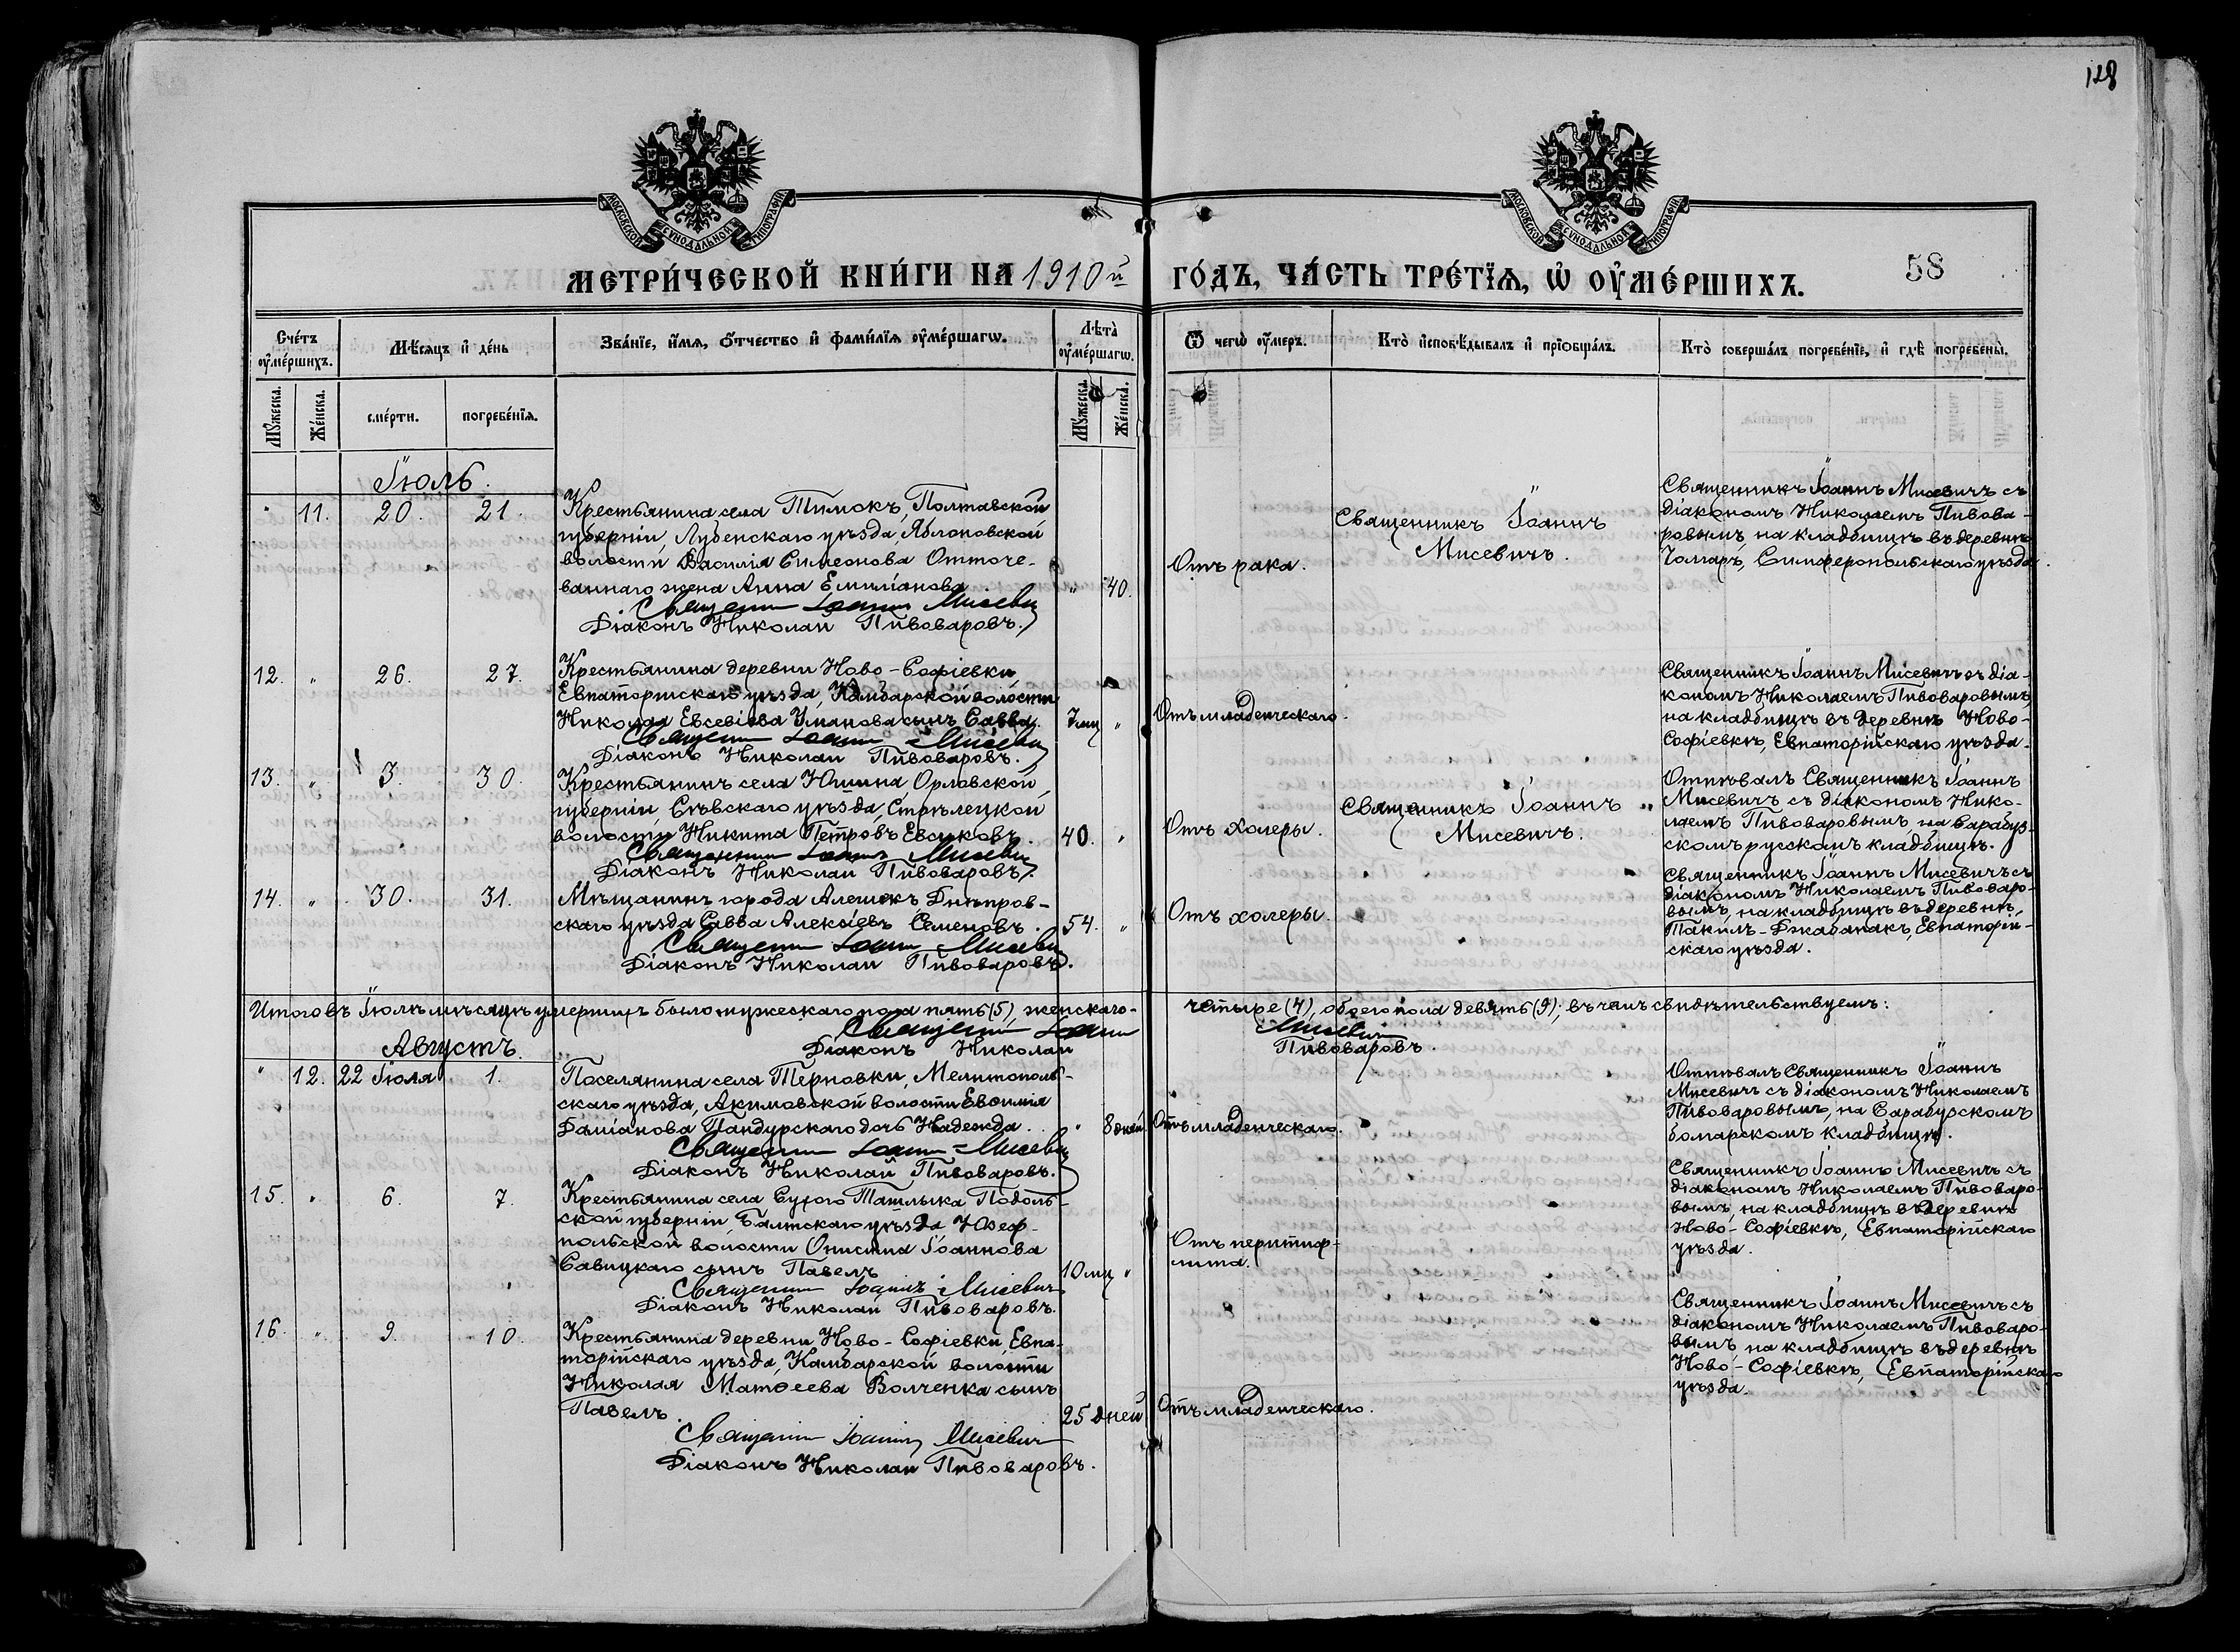 128
МОСКОВСКОЙ СѴНОДАЛЬНОЙ ТИПОГРАФІИ
МОСКОВСКОЙ СѴНОДАЛЬНОЙ ТИПОГРАФІИ
МЕТРИ́ЧЕСКОЙ КНИ́ГИ НА 1910й ГО́ДЪ, ЧА́СТЬ ТРЕ́ТЇѦ, Ѡ҆ ОУ҆МЕ́РШИХЪ.
58
Сче́тъ оу҆ме́ршихъ.
Мѣ́сяцъ и҆ де́нь
Зва́нїе, и҆́мѧ, ѻ҆́тчество и҆ фами́лїѧ оу҆ме́ршагѡ.
Лѣта̀ оу҆ме́ршагѡ.
Ѿ чегѡ̀ оу҆́меръ.
Кто̀ и҆сповѣ́дывалъ и҆ прїѡбща́лъ.
Кто̀ соверша́лъ погребе́нїе, и҆ гдѣ̀ погребены̀.
Мꙋ́жеска.
Же́нска.
сме́рти.
погребе́нїѧ.
Мꙋ́жеска.
Же́нска.
Іюль.
" 11. 20. 21.
Крестьянина села Тимокъ, Полтавской
губерніи, Лубенскаго уѣзда, Яблоновской
волости Василія Симеонова Отточе-
ваннаго жена Анна Емиліанова
" 40.
Священникъ Іоаннъ Мисевичъ
Діаконъ Николай Пивоваровъ.
Отъ рака.
Священникъ Іоаннъ
Мисевичъ.
Священникъ Іоаннъ Мисевичъ съ
діакономъ Николаемъ Пивова-
ровымъ, на кладбищѣ въ деревнѣ
Чолгаръ, Симферопольскаго уѣзда.
12. " 26. 27.
Крестьянина деревни Ново-Софіевки,
Евпаторійскаго уѣзда, Камбарской волости
Николая Евсевіева Уманова сынъ Савва.
7 мц "
Священникъ Іоаннъ Мисевичъ
Діаконъ Николай Пивоваровъ.
Отъ младенческаго.
Священникъ Іоаннъ Мисевичъ съ діа-
кономъ Николаемъ Пивоваровымъ,
на кладбищѣ въ деревнѣ Ново-
Софіевкѣ, Евпаторійскаго уѣзда.
13. " 3. 30.
Крестьянинъ села Юшина, Орловской
губерніи, Сѣвскаго уѣзда, Стрѣлецкой
волости Никита Петровъ Евсиковъ.
40. "
Священникъ Іоаннъ Мисевичъ
Діаконъ Николай Пивоваровъ.
Отъ холеры.
Священникъ Іоаннъ
Мисевичъ.
Отпѣвалъ Священникъ Іоаннъ
Мисевичъ съ діакономъ Нико-
лаемъ Пивоваровымъ на Сарабуз-
скомъ русскомъ кладбищѣ.
14. " 30. 31.
Мѣщанинъ города Алешокъ Днѣпров-
скаго уѣзда Савва Алексіевъ Семеновъ.
54. "
Священникъ Іоаннъ Мисевичъ
Діаконъ Николай Пивоваровъ.
Отъ холеры.
Священникъ Іоаннъ Мисевичъ съ
діакономъ Николаемъ Пивоваро-
вымъ, на кладбищѣ въ деревнѣ
Такилъ-Джабанакъ, Евпаторій-
скаго уѣзда.
Итого въ Іюлѣ мѣсяцѣ умершихъ было мужескаго пола пять (5), женскаго- четыре (4), обоего пола девять (9); въ чемъ свидѣтельствуемъ:
Священникъ Іоаннъ Мисевичъ
Діаконъ Николай Пивоваровъ.
Августъ.
" 12. 22 Іюля 1.
Поселянина села Терновки, Мелитополь-
скаго уѣзда, Акимовской волости Евѳимія
Даміанова Пандурскаго дочь Надежда.
" 8 дней
Священникъ Іоаннъ Мисевичъ
Діаконъ Николай Пивоваровъ.
Отъ младенческаго.
Отпѣвалъ Священникъ Іоаннъ
Мисевичъ съ діакономъ Николаемъ
Пивоваровымъ, на Сарабузскомъ
болгарскомъ кладбищѣ.
15. " 6. 7.
Крестьянина села Сухого Ташлыка Подоль-
ской губерніи, Балтскаго уѣзда, Юзеф-
польской волости Онисима Іоаннова
Савицкаго сынъ Павелъ
10 мц "
Священникъ Іоаннъ Мисевичъ
Діаконъ Николай Пивоваровъ.
Отъ перитиф-
лита.
Священникъ Іоаннъ Мисевичъ съ
діакономъ Николаемъ Пивоваро-
вымъ, на кладбищѣ въ деревнѣ
Ново-Софіевкѣ, Евпаторійскаго
уѣзда.
16. " 9. 10.
Крестьянина деревни Ново-Софіевки, Евпа-
торійскаго уѣзда, Камбарской волости
Николая Матѳеева Волченка сынъ
Павелъ.
25 дней
Священникъ Іоаннъ Мисевичъ
Діаконъ Николай Пивоваровъ.
Отъ младенческаго.
Священникъ Іоаннъ Мисевичъ съ
діакономъ Николаемъ Пивоваро-
вымъ, на кладбищѣ въ деревнѣ
Ново-Софіевкѣ, Евпаторійскаго
уѣзда.